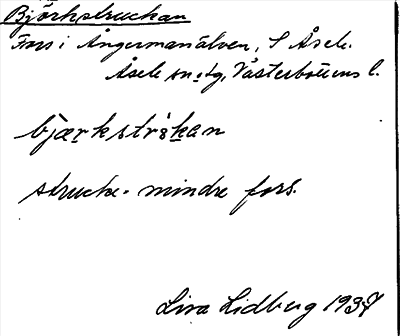 Björkstruckan
Fors i Ångermanälven, S Åsele.
Åsele sn o tg, Västerbottens l.
bjærkstrı̀kan
strucka - mindre fors.
Lisa Lidberg 1937